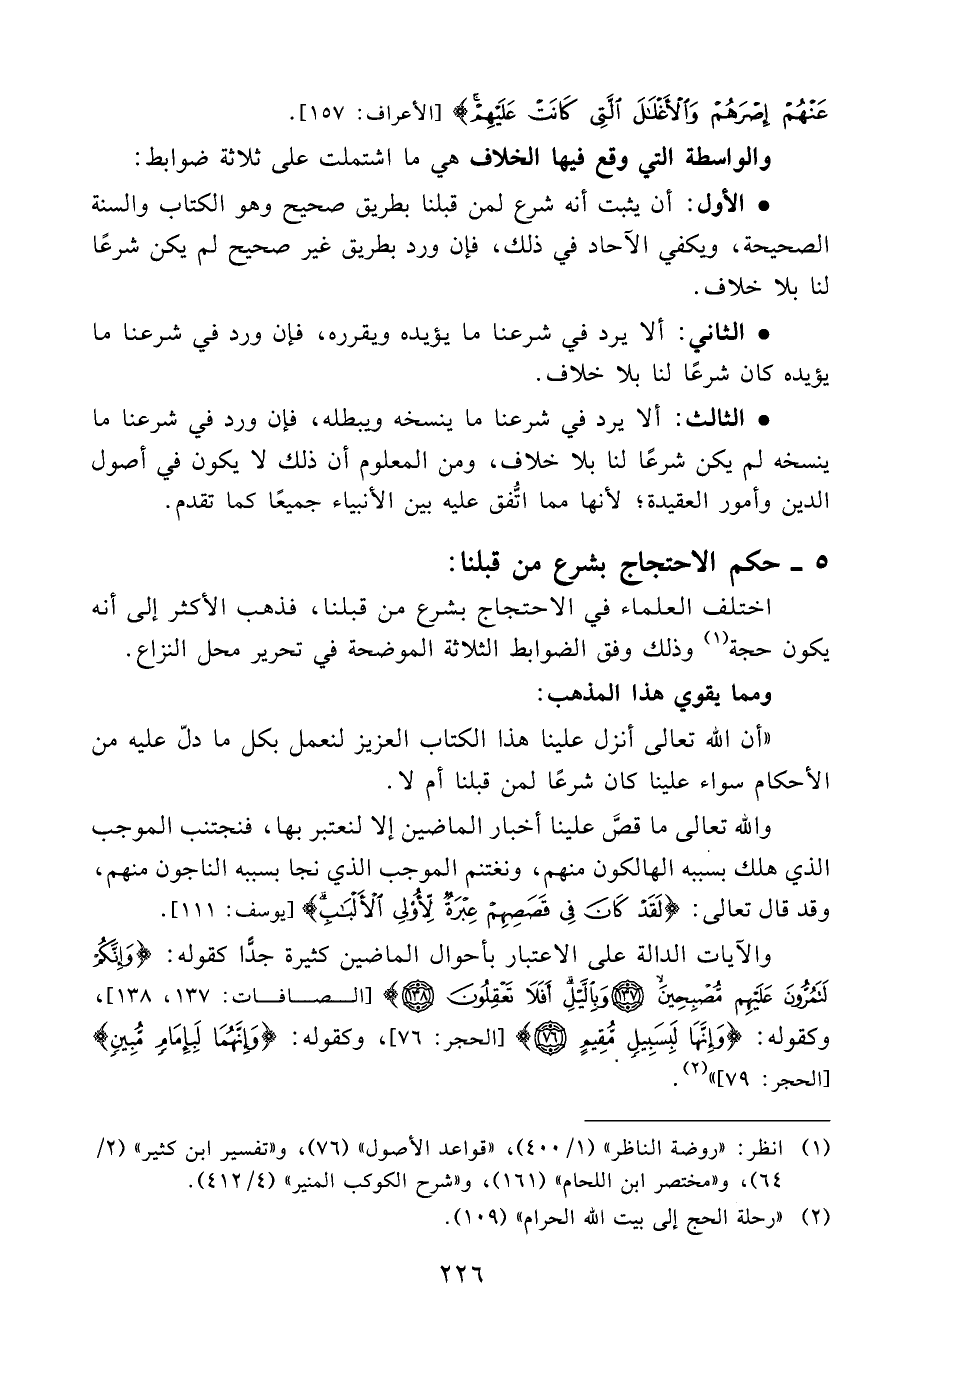 عَنْهُمْ إِصْرَهُمْ وَٱلْأَغْلَٰلَ ٱلَّتِى كَانَتْ عَلَيْهِمْۚ﴾ [الأعراف: ١٥٧].
والواسطة التي وقع فيها الخلاف هي ما اشتملت على ثلاثة ضوابط:
● الأول: أن يثبت أنه شرع لمن قبلنا بطريق صحيح وهو الكتاب والسنة
الصحيحة، ويكفي الآحاد في ذلك، فإن ورد بطريق غير صحيح لم يكن شرعًا
لنا بلا خلاف.
● الثاني: ألا يرد في شرعنا ما يؤيده ويقرره، فإن ورد في شرعنا ما
يؤيده كان شرعًا لنا بلا خلاف.
● الثالث: ألا يرد في شرعنا ما ينسخه ويبطله، فإن ورد في شرعنا ما
ينسخه لم يكن شرعًا لنا بلا خلاف، ومن المعلوم أن ذلك لا يكون في أصول
الدين وأمور العقيدة؛ لأنها مما اتُّفق عليه بين الأنبياء جميعًا كما تقدم.
٥ ـ حكم الاحتجاج بشرع من قبلنا:
اختلف العلماء في الاحتجاج بشرع من قبلنا، فذهب الأكثر إلى أنه
يكون حجة(١) وذلك وفق الضوابط الثلاثة الموضحة في تحرير محل النزاع.
ومما يقوي هذا المذهب:
«أن الله تعالى أنزل علينا هذا الكتاب العزيز لنعمل بكل ما دلّ عليه من
الأحكام سواء علينا كان شرعًا لمن قبلنا أم لا.
والله تعالى ما قصَّ علينا أخبار الماضين إلا لنعتبر بها، فنجتنب الموجب
الذي هلك بسببه الهالكون منهم، ونغتنم الموجب الذي نجا بسببه الناجون منهم،
وقد قال تعالى: ﴿لَقَدْ كَانَ فِى قَصَصِهِمْ عِبْرَةٌ لِّأُو۟لِى ٱلْأَلْبَٰبِۗ﴾ [يوسف: ١١١].
والآيات الدالة على الاعتبار بأحوال الماضين كثيرة جدًّا كقوله: ﴿وَإِنَّكُمْ
لَتَمُرُّونَ عَلَيْهِم مُّصْبِحِينَ ١٣٧ وَبِٱلَّيْلِۗ أَفَلَا تَعْقِلُونَ ١٣٨﴾ [الـصـافـات: ١٣٧، ١٣٨]،
وكقوله: ﴿وَإِنَّهَا لَبِسَبِيلٍ مُّقِيمٍ ٧٦﴾ [الحجر: ٧٦]، وكقوله: ﴿وَإِنَّهُمَا لَبِإِمَامٍ مُّبِينٍ﴾
[الحجر: ٧٩]»(٢).
(١) انظر: «روضة الناظر» (١/ ٤٠٠)، «قواعد الأصول» (٧٦)، و«تفسير ابن كثير» (٢/
٦٤)، و«مختصر ابن اللحام» (١٦١)، و«شرح الكوكب المنير» (٤/ ٤١٢).
(٢) «رحلة الحج إلى بيت الله الحرام» (١٠٩).
٢٢٦